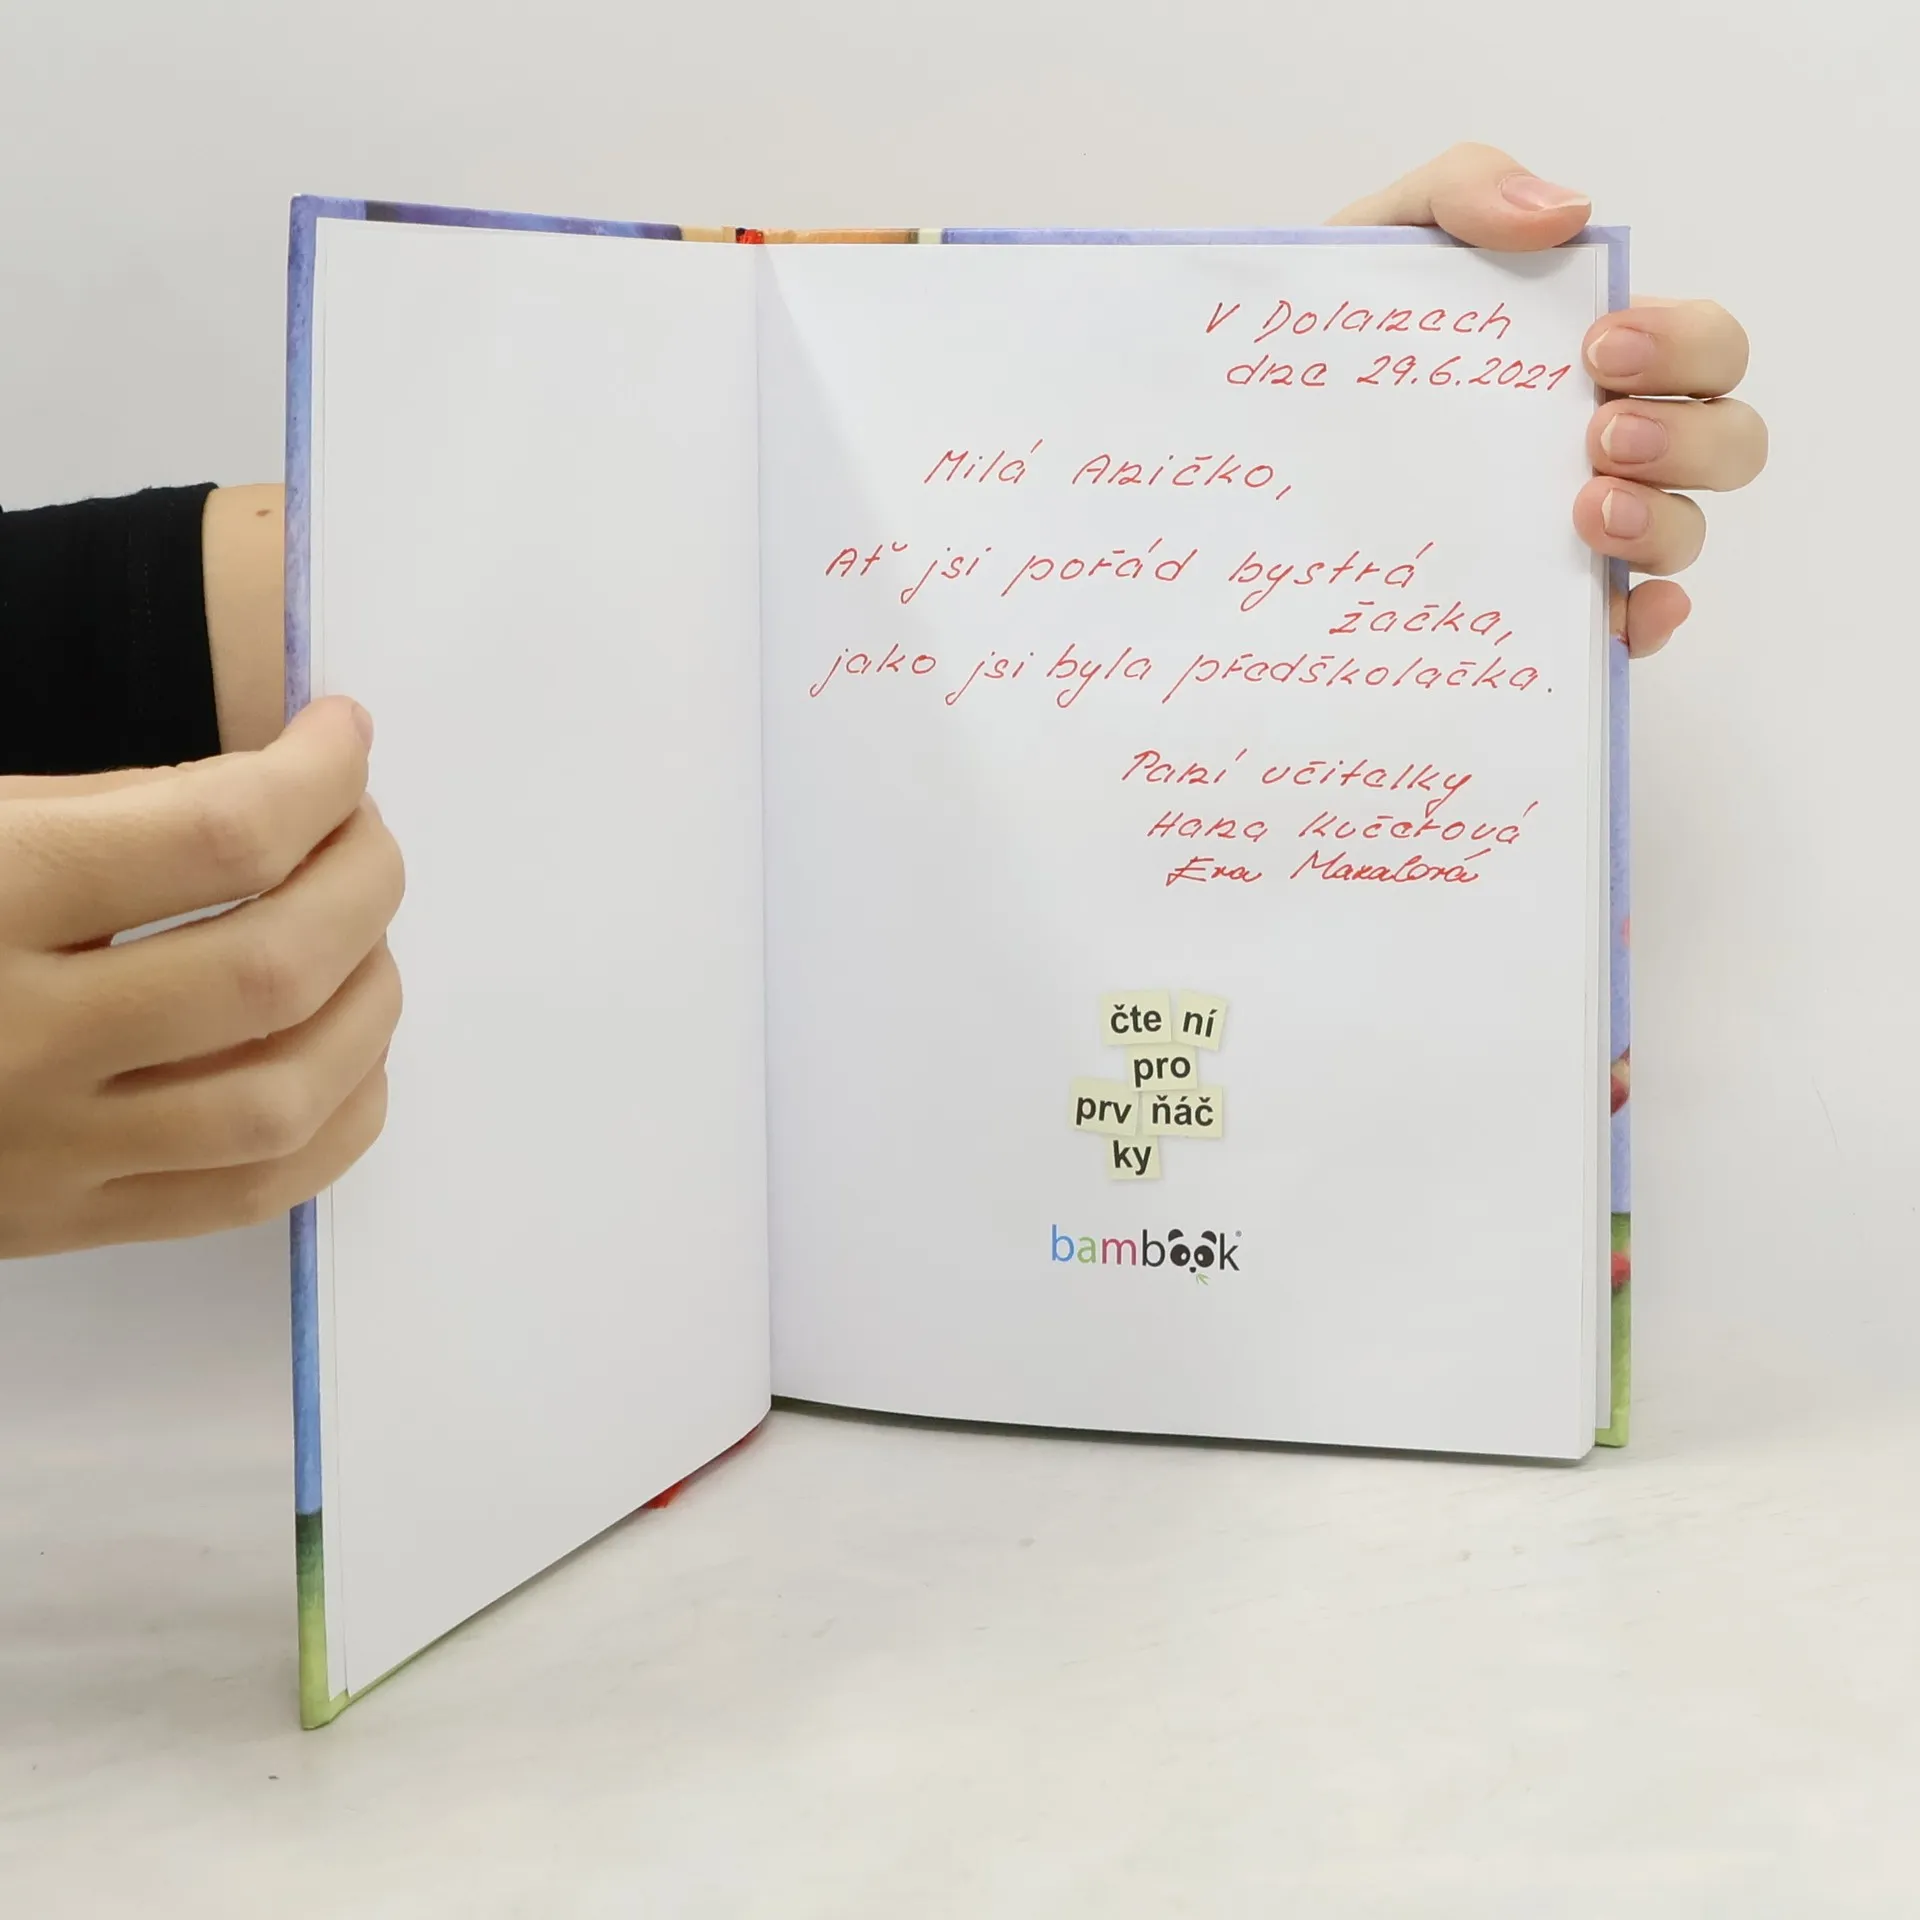 V Dolanech
dne 29.6.2021
Milá Aničko,
Ať jsi pořád bystrá
žačka,
jako jsi byla předškolačka.
Paní učitelky
Hana Kučerová
Eva
čte ní
pro
prv ňáč
ky
bambook®